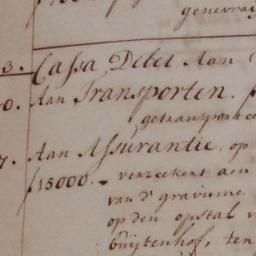 generaa
3. Cassa Debet Aan
0. Aan Transporten. f
getransporteer
7. Aan Assurantie. op
f15000.- verzeekert aen
van d' gravinne
op den opstal v
buijtenhof, ten